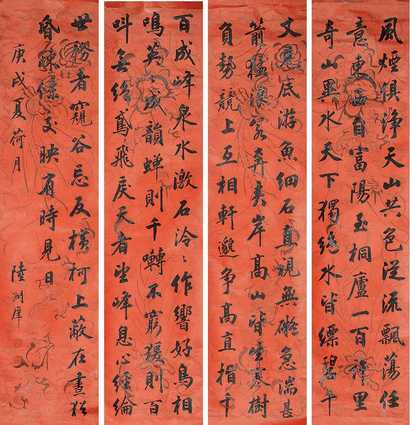 風煙俱淨天山共色從流飄蕩任
意東西自富陽至桐廬一百許里
奇山異水天下獨絕水皆縹碧千
丈見底游魚細石直視無礙急湍甚
箭猛浪若奔夾岸高山皆生寒樹
負勢競上互相軒邈爭高直指千
百成峰泉水激石泠泠作響好鳥相
鳴成韻蟬則千轉不窮猨則百
叫無絕鳶飛戾天者望峰息心經綸
世務者窺谷忘反橫柯上蔽在晝猶
昏疎條交映有時見日
庚戌夏荷月
陸潤庠